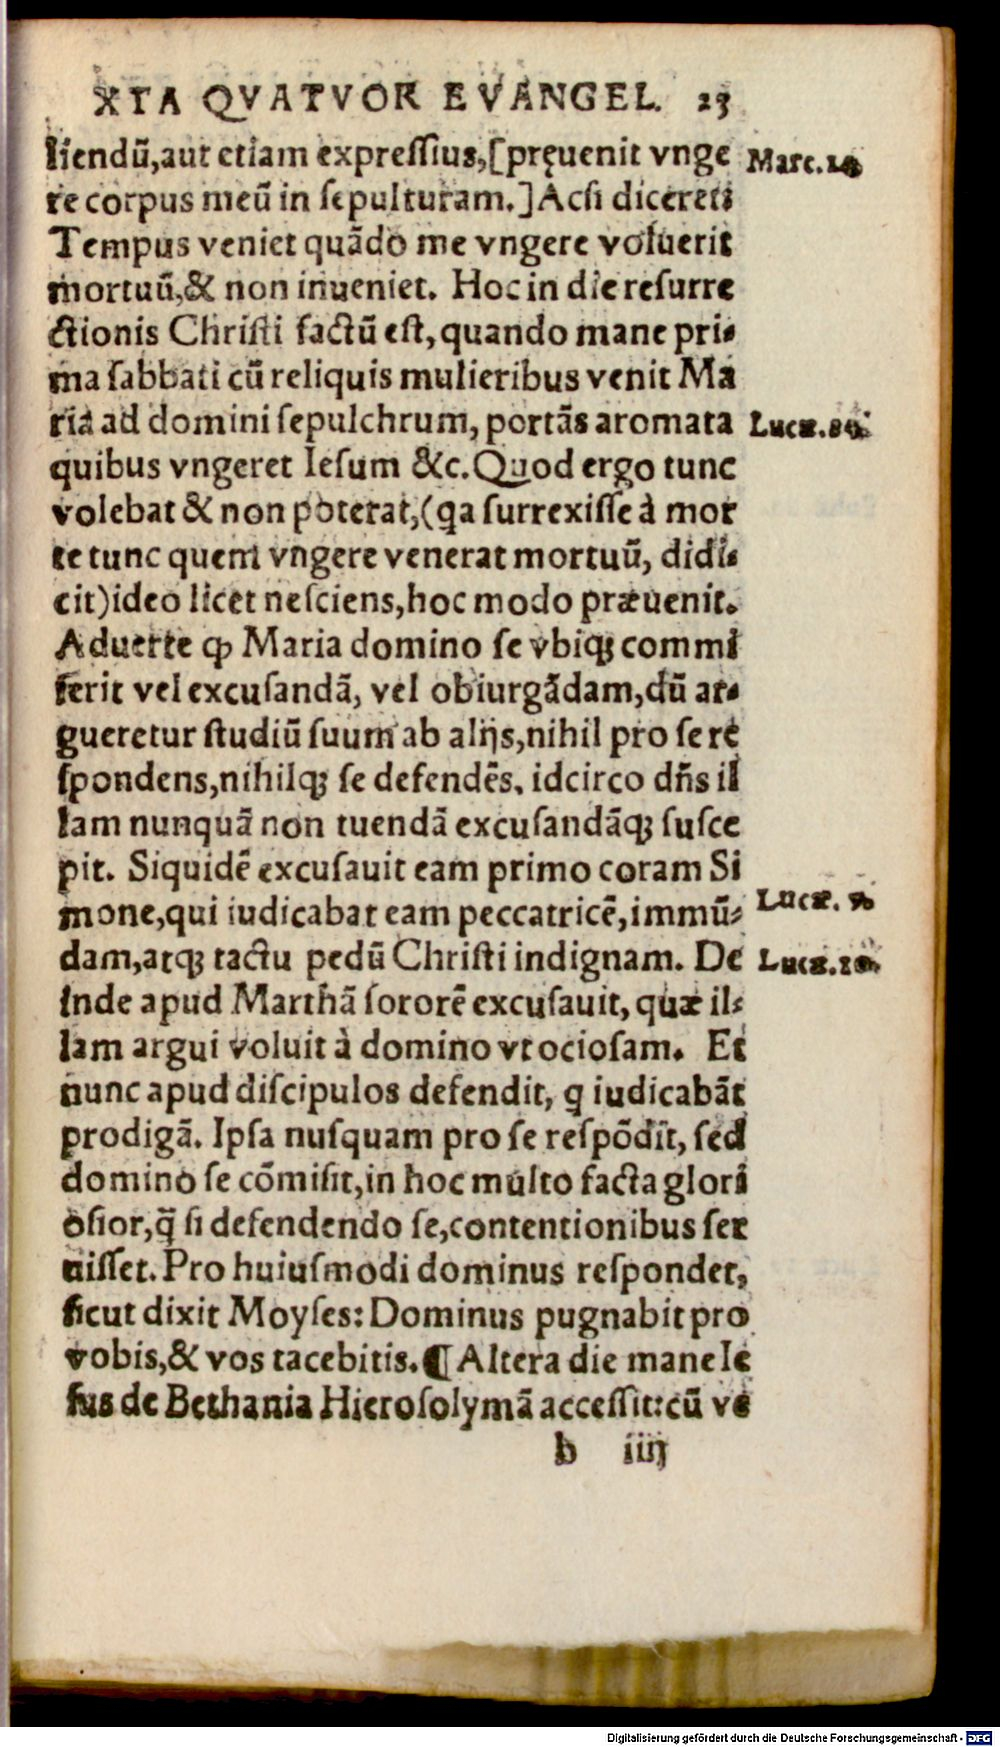 XTA QVATVOR EVANGEL. 23
liendũ,aut etiam expreſſius,[pręuenit vnge
Marc.14.
re corpus meũ in ſepulturam.]Acſi diceret:
Tempus veniet quãdo me vngere voluerit
mortuũ,& non inueniet. Hoc in die reſurre
ctionis Chriſti factũ eſt, quando mane pri-
ma ſabbati cũ reliquis mulieribus venit Ma
ria ad domini ſepulchrum, portãs aromata
Lucæ.
quibus vngeret Ieſum &c. Quod ergo tunc
volebat & non poterat,(qa ſurrexiſſe à mor
te tunc quem vngere venerat mortuũ, didi-
cit)ideo licet neſciens,hoc modo præuenit.
Aduerte ꝙ Maria domino ſe vbiqꝫ commi
ſerit vel excuſandã, vel obiurgãdam,dũ ar-
gueretur ſtudiũ ſuum ab alijs,nihil pro ſe re
ſpondens,nihilqꝫ ſe defendẽs. idcirco dñs il
lam nunquã non tuendã excuſandãqꝫ ſuſce
pit. Siquidẽ excuſauit eam primo coram Si
mone,qui iudicabat eam peccatricẽ,immũ-
Lucæ. 7.
dam,atqꝫ tactu pedũ Chriſti indignam. De
Lucæ.10.
inde apud Marthã ſororẽ excuſauit, quæ il-
lam argui voluit à domino vt ocioſam. Et
nunc apud diſcipulos defendit, q iudicabãt
prodigã. Ipſa nuſquam pro ſe reſpõdit, ſed
domino ſe cõmiſit,in hoc multo facta glori
oſior,q̃ ſi defendendo ſe,contentionibus ſer
uiſſet. Pro huiuſmodi dominus reſpondet,
ſicut dixit Moyſes: Dominus pugnabit pro
vobis,& vos tacebitis.¶ Altera die mane Ie
ſus de Bethania Hieroſolymã acceſſit:cũ ve
b iiij
Digitalisierung gefördert durch die Deutsche Forschungsgemeinschaft - DFG